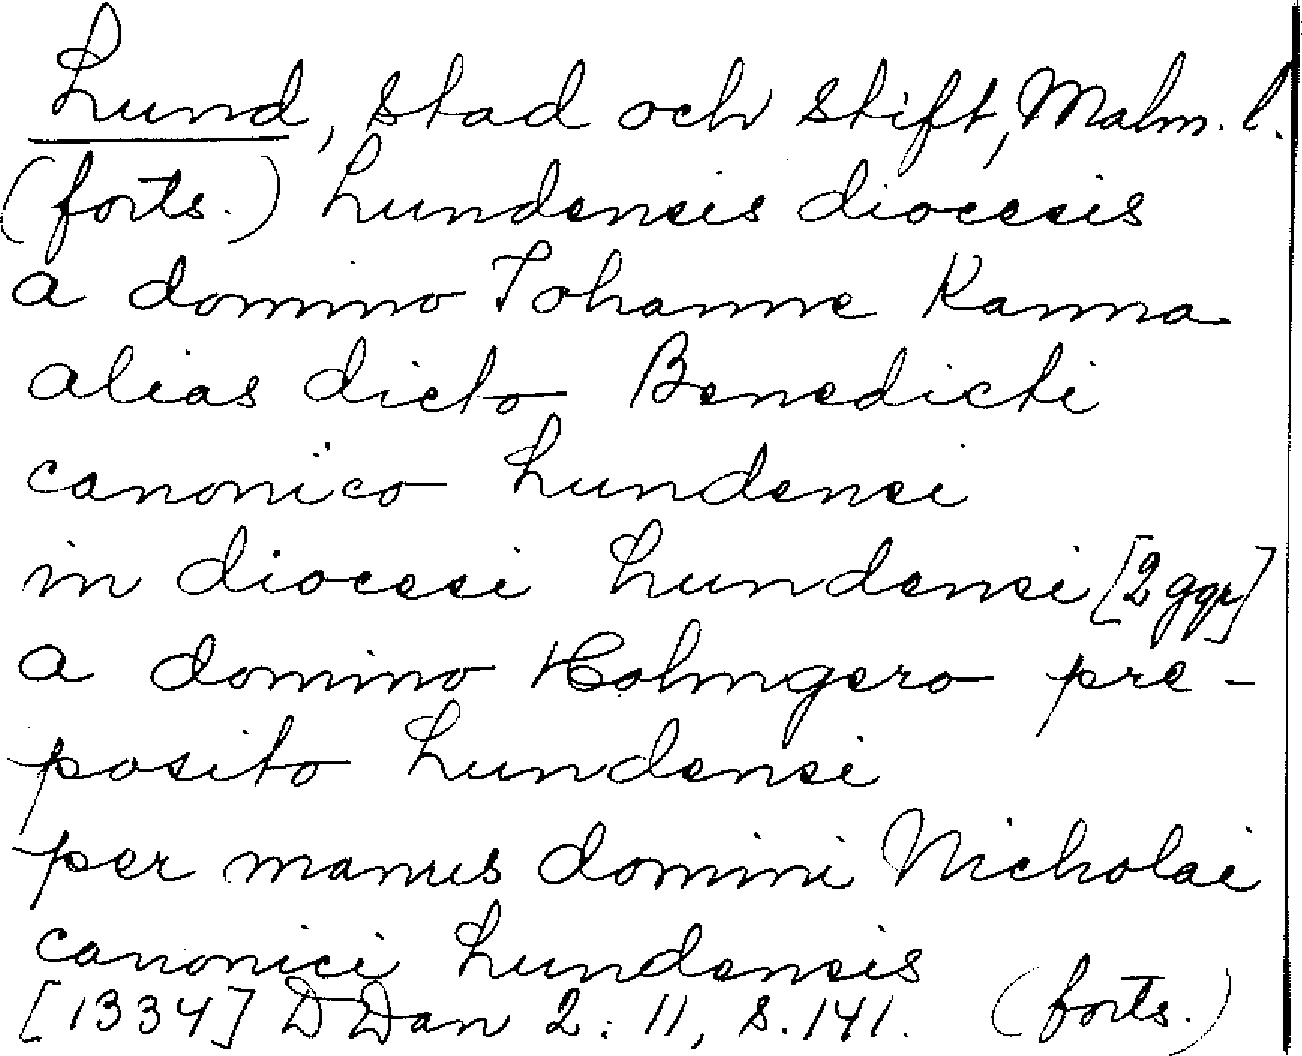 Lund, stad och stift, Malm. l.
(forts.) Lundensis diocesis
a domino Johanne Kanna
alias dicto Benedicti
canonico Lundensi
in diocesi Lundensi [2 ggr]
a domino Holmgero pre-
posito Lundensi
per manus domini Nicholai
canonici Lundensis
[1334] DDan 2: 11, s. 141. (forts.)